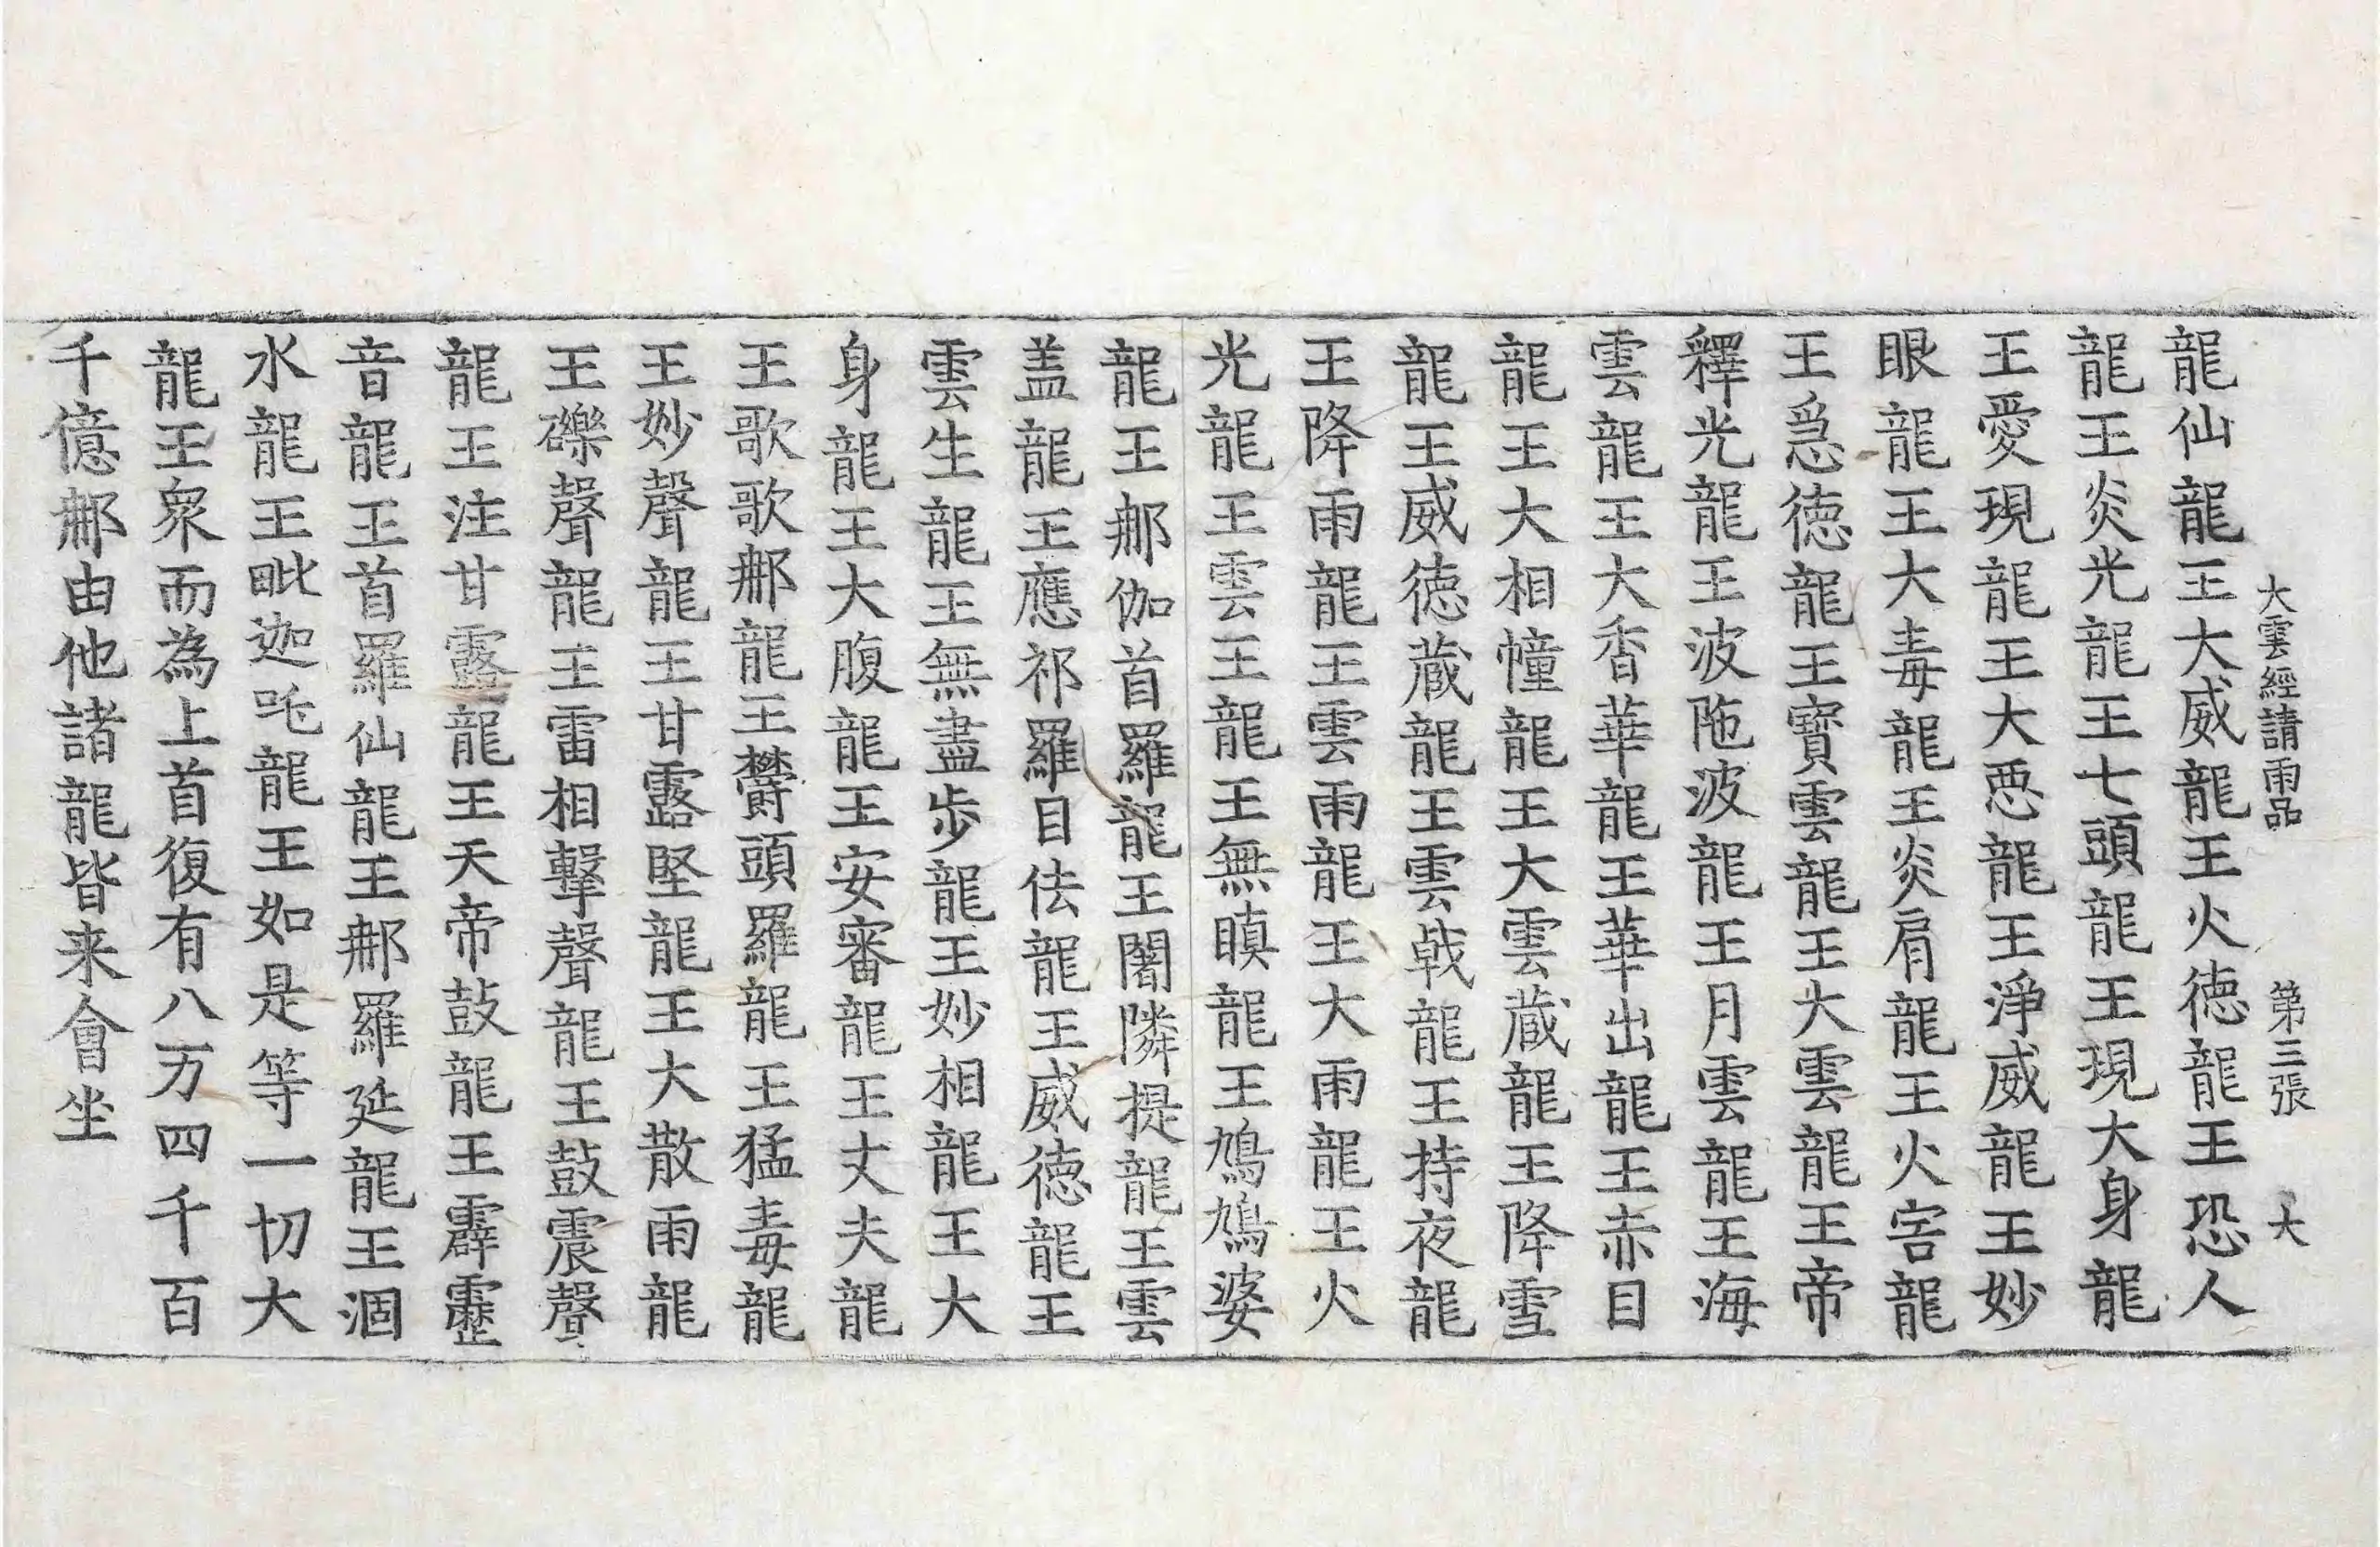 大雲經請雨品 第三張 大
龍仙龍王大威龍王火徳龍王恐人
龍王炎光龍王七頭龍王現大身龍
王愛現龍王大𢙣龍王淨威龍王妙
眼龍王大毒龍王炎肩龍王火害龍
王忿徳龍王寶雲龍王大雲龍王帝
釋光龍王波陁波龍王月雲龍王海
雲龍王大香華龍王華出龍王赤目
龍王大相幢龍王大雲蔵龍王降雪
龍王威徳蔵龍王雲戟龍王持夜龍
王降雨龍王雲雨龍王大雨龍王火
光龍王雲王龍王無瞋龍王鳩鳩婆
龍王那伽首羅龍王闍隣提龍王雲
盖龍王應祁羅目佉龍王威徳龍王
雲生龍王無盡步龍王妙相龍王大
身龍王大腹龍王安審龍王丈夫龍
王歌歌那龍王欝頭羅龍王猛毒龍
王妙聲龍王甘露堅龍王大散雨龍
王礫聲龍王雷相擊聲龍王鼓震聲
龍王注甘露龍王天帝鼓龍王霹靂
音龍王首羅仙龍王那羅延龍王涸
水龍王毗迦吒龍王如是等一切大
龍王衆而為上首復有八万四千百
千億那由他諸龍皆来會坐